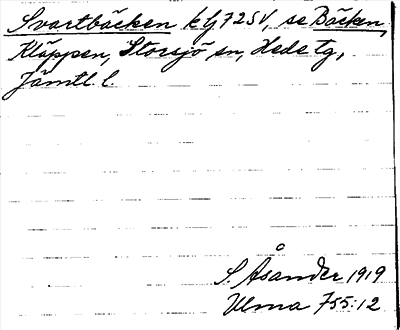 Svartbäcken klg 72 SV, se Bäcken,
Kläppen, Storsjö sn, Hede tg,
Jämtl. l.
S. Åsander 1919
Ulma 755:12